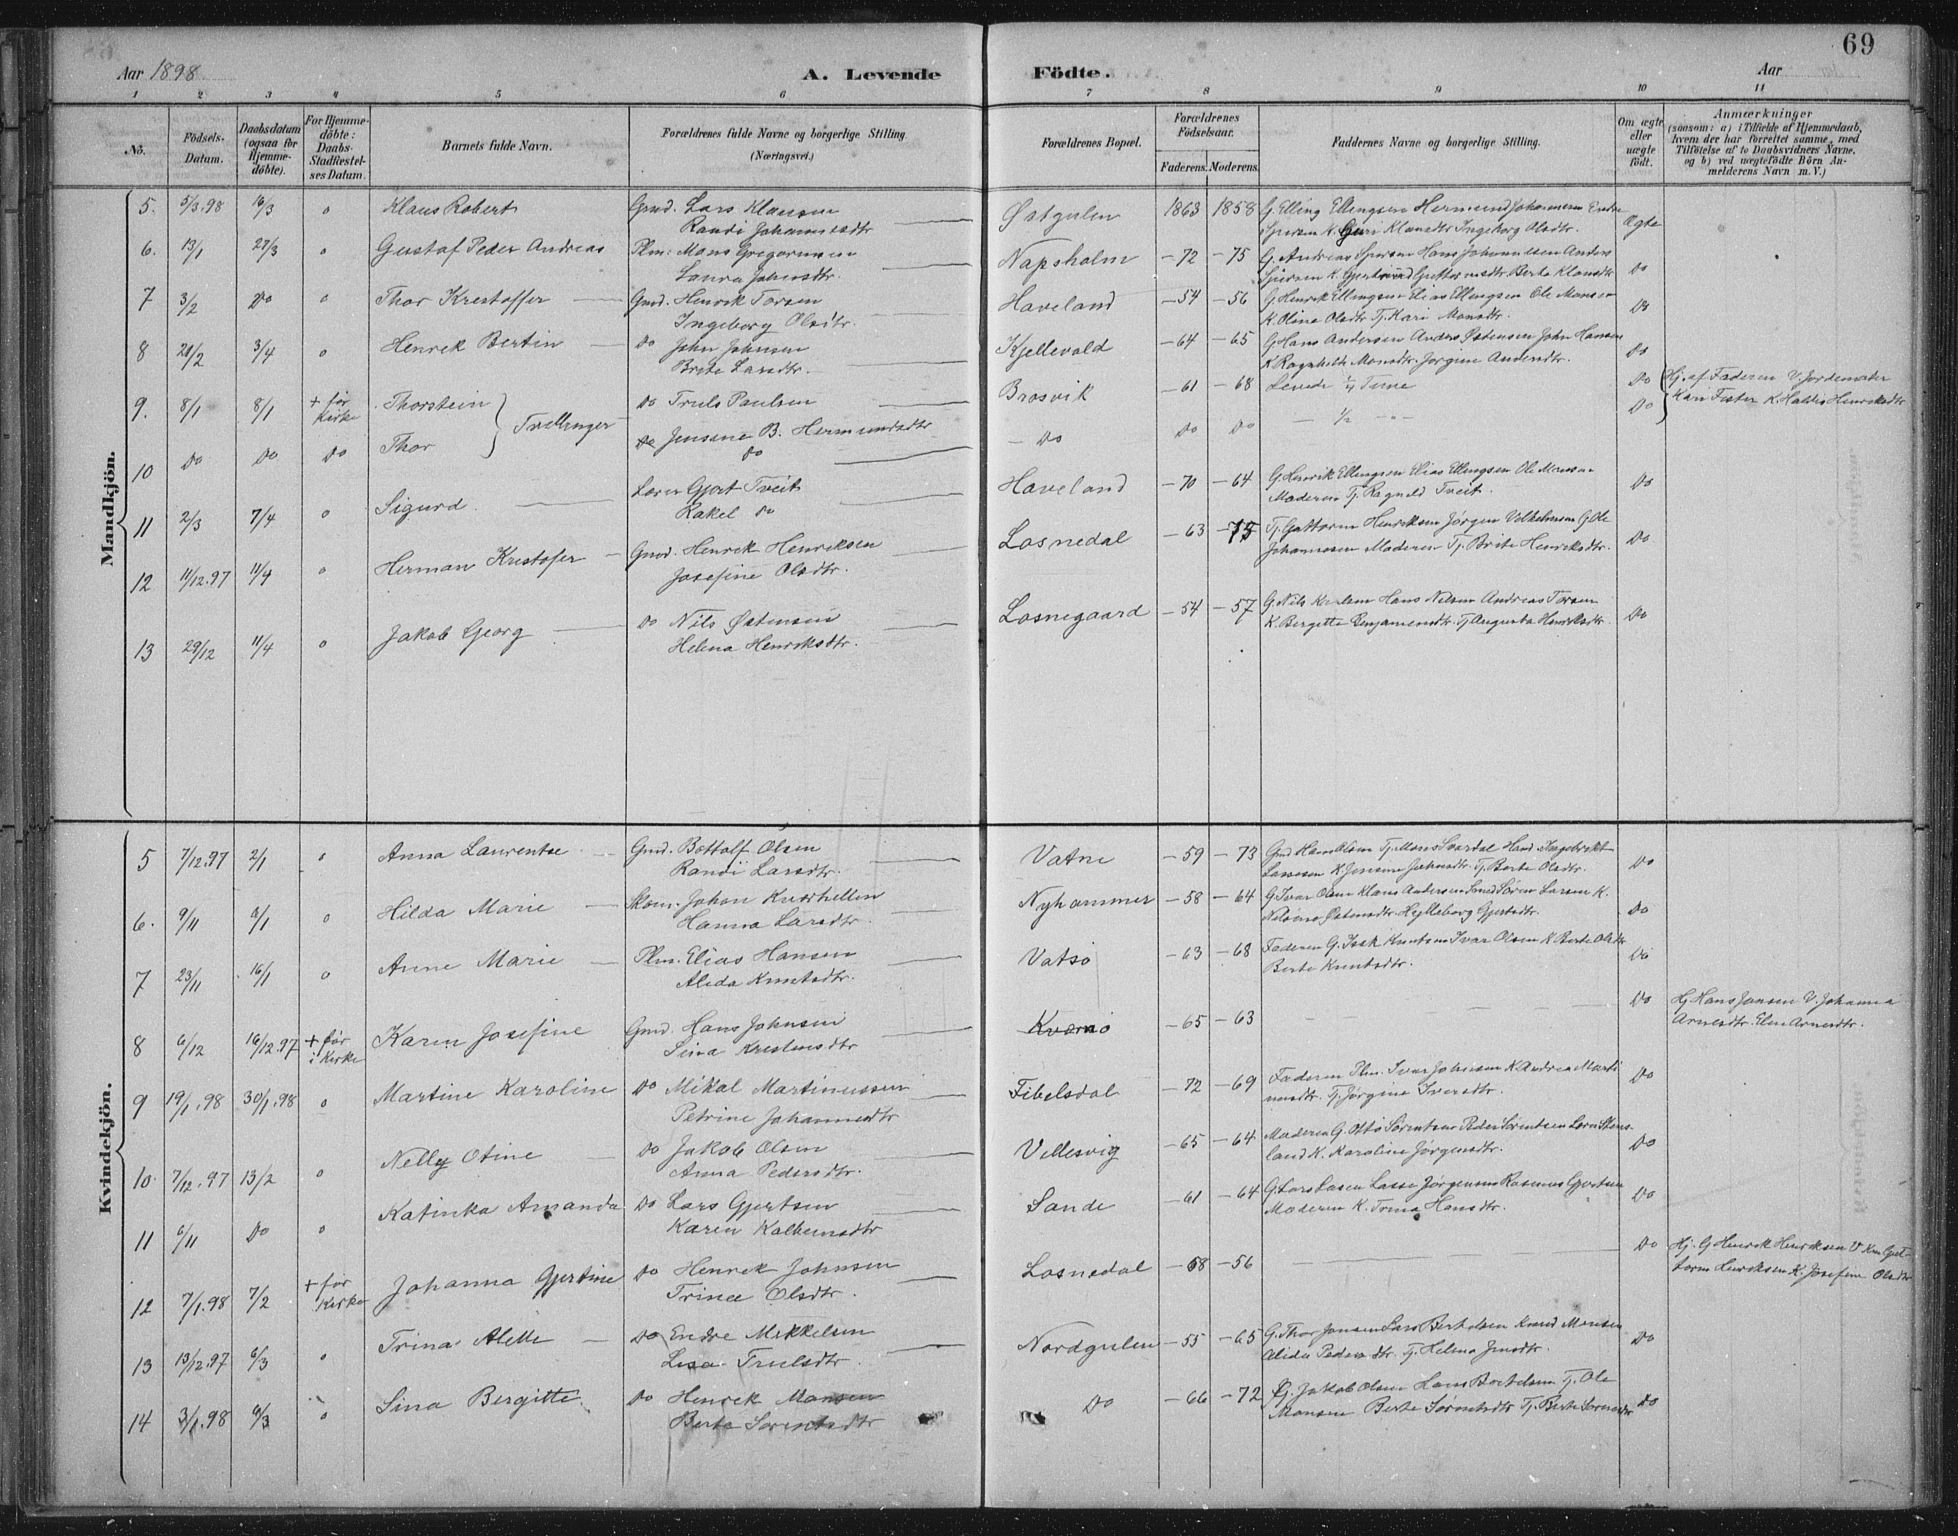 69
Aar 1898
A. Levende Födte.
Aar
1 2 3 4 5 6 7 8 9 10 11
No.
Födsels-Datum.
Daabsdatum (ogsaa för Hjemme-döbte).
For Hjemme-döbte: Daabs-Stadfæstel-ses Datum.
Barnets fulde Navn.
Forældrenes fulde Navne og borgerlige Stilling. (Næringsvei.)
Forældrenes Bopæl.
Forældrenes Födselsaar.
Faderens. Moderens.
Faddernes Navne og borgerlige Stilling.
Om ægte eller uægte födt.
Anmærkninger
(saasom: a) i Tilfælde af Hjemmedaab, hvem der har forrettet samme, med Tilföielse af to Daabsvidners Navne, og b) ved uægtefödte Börn An-melderens Navn m. V.)
Mandkjön.
5. 5/3.98 16/3 o Klaus Robert Gmd. Lars Klausen Østgulen 1863 1858 G. Elling Ellingsen Hermund Johannesen Endre Ægte
Randi Johannesdtr Ingeborg Olsdtr.
6. 13/1 27/3 o Gustaf Peder Andreas Plm: Mons Gregoriussen Napsholm -72 -75 Do
Laura Johnsdtr.
7 3/2 Do o Thor Krestoffer Gmd. Henrik Torsen Haveland -54 -56 G. Henrik Ellingsen Elias Ellingsen Ole Monsen Do
Ingeborg Olsdtr. K. Oline Olsdtr Tj. Kari Monsdtr.
8 20/2 3/4 o Henrek Bertin Do John Johnsen Kjellevold -64 -65 G. Hans Andersen Anders Østensen John Hansen Do
Brite Larsdtr. K. Ragnhilde Monsdtr. Jørgine Andersdtr.
9. 8/1 8/1 + før Kirke Thorstein Tvillinger Do Truls Paulsen Brosvik -61 -68 Levede ½ Time Do Hj. af Faderen V. Jordemoder
10 Do Do Do Thor Do Jensine B. Hermundsdtr - Do Do Do - ½ - " - Do
11 2/3 7/4 o Sigurd Lærer Gjert Tveit Haveland -70 -64 G. Henrik Ellingsen Elias Ellingsen Ole Monsen Do
Rakel Do Moderen Tj. Ragnild Tveit.
12 11/12.97 11/4 o Herman Krestofer Gmd. Henrek Henriksen Losnedal -63 -75 Tj. Guttorm Henriksen Jørgen Vilhelmsen G. Ole Do
Josefine Olsdtr. Johannesen Moderen Tj. Brite Henriksdtr.
13 29/12 11/4 o Jakob Georg Do Nils Østensen Losnegaard -54 -57 Hans Nilsen Andreas Torsen Do
Helena Henriksdtr. K. Bergitte Benjaminsdtr. Tj. Augusta Henriksdtr.
Kvindekjön.
5 7/12.97 2/1 o Anna Laurentse Gmd. Bottolf Olsen Vatne -59 -73 Do
Randi Larsdtr. Lassesen K. Jensine Johnsdtr. Tj. Berte Olsdtr.
6. 9/11 2/1 o Hilda Marie Skom. Johan Kvarhellen Nyhammer -58 -64 G. Ivar Olsen Klaus Andersen Smed Søren Larsen K. Do
Hanna Larsdtr. Gjertsdtr.
7 23/11 16/1 o Anne Marie Plm. Elias Hansen Vatsø -63 -68 Faderen G. Isak Knutsen Ivar Olsen K. Berte Olsdtr Do
Aleda Knutsdtr. Berte Knutsdtr.
8 6/12 16/12.97 + før i Kirke Karen Josefine Gmd. Hans Johnsen Kværnø -65 -63 Do Hj. Hans Jansen V. Johanna
Sina Krestensdtr Arnesdtr. Elen Arnesdtr.
9 19/1.98 30/1.98 o Martine Karoline Do Mikal Martinussen Fibelsdal -72 -69 Faderen Plm. Ivar Johnsen K. Andrea Marti Do
Petrine Johannesdtr nusdtr. Tj. Jørgine Iversdtr.
10. 7/12.97 13/2 o Nelly Otine Do Jakob Olsen Vellesvig -65 -64 Moderen G. Otto Sørensen Peder Sørensen Do
Anna Pedersdtr. land K. Karoline Jørgensdtr.
11 6/11 Do o Katinka Amanda Do Lars Gjertsen Sande -61 -64 G. Lars Lasen Lasse Jørgensen Rasmus Gjertsen Do
Karen Moderen K. Trina Hansdtr.
12 7/1.98 7/2 + før Kirke Johanna Gjertine Do Henrek Johnsen Losnedal -68 -56 Do Hj. G. Henrek Henriksen V.
Trince Olsdtr. Henriksen K. Josefine Olsdtr
13 13/12.97 6/3 o Trina Alette Do Endre Mikkelsen Nordgulen -55 -65 G. Thor Jensen Lars Bertelsen Knud Monsen Do
Lisa Trulsdtr. Alida Pedersdtr. Tj. Helena Jensdtr.
14 3/1.98 6/3 o Sina Bergitte Do Henrek Monsen Do -66 -72 Jakob Olsen Hans Bertelsen Tj. Ole Do
Berte Sørensdtr Monsen Berte Sørensdtr Tj. Berte Sørensdtr